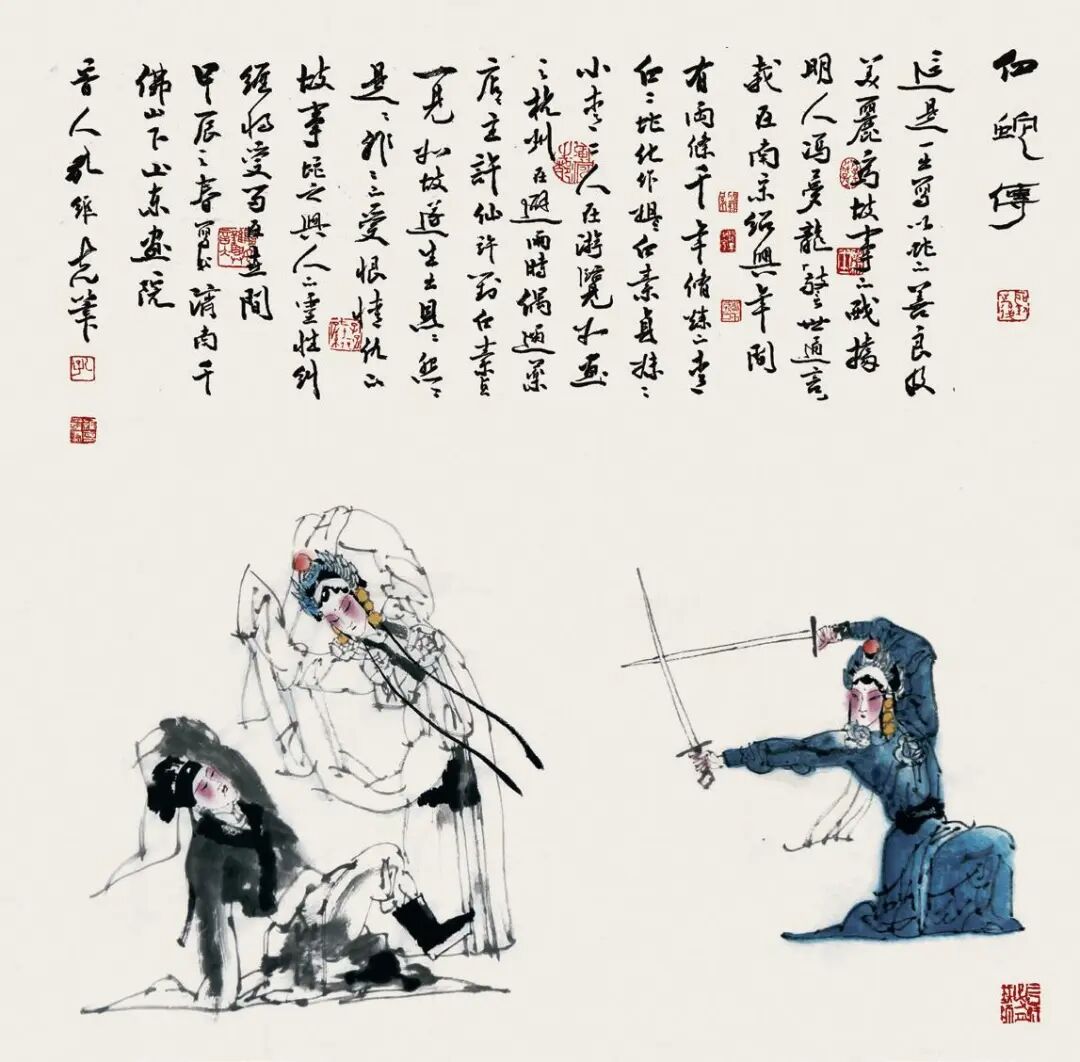 白蛇傳
這是一出寫以蛇之善良
美麗的故事之戲據
明人馮夢龍警世通言
載在南宋紹興年間
有兩條千年脩煉之青
白二蛇化作白素貞妹
小青二人在游覽如畫
之杭州在避雨時偶遇藥
店主許仙許對白素貞
一見如故遂生出恩恩怨怨
是是非非之愛恨情仇
故事蛇之與人之靈性糾
纏的愛在其間
甲辰之春寫於濟南千
佛山下山東画院
晉人孔維克筆